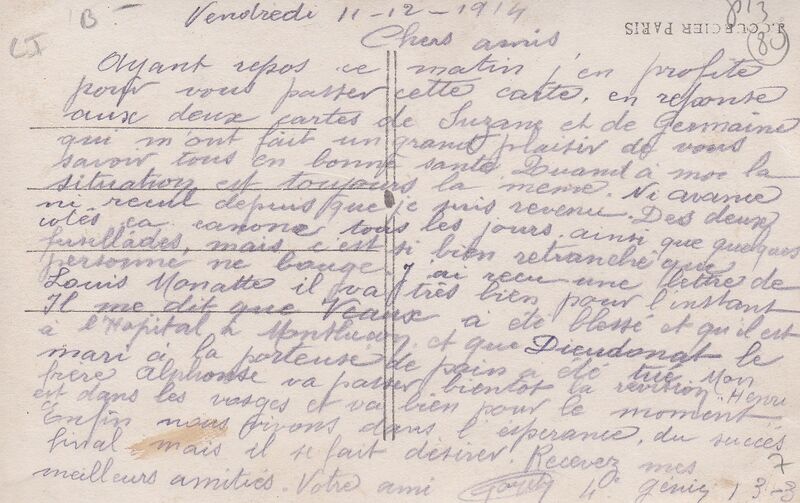 Vendredi 11-12-1914
813
80
LJ B
J. COURCIER PARIS
Chers amis
Ayant repos ce matin j'en profite
pour vous passer cette carte, en reponse
aux deux cartes de Suzane et de Germaine
qui m'ont fait un grand plaisir de vous
savoir tous en bonne santé. Quand à moi la
situation est toujours la meme. Ni avance
ni recul depuis que je suis revenu. Des deux
cotés ca canone tous les jours. ainsi que quelques
fusillades, mais c'est si bien retranché que
personne ne bouge. J'ai recu une lettre de
Louis Monatte il va très bien pour l'instant
Il me dit que Veaux a été blessé et qu'il est
à l'Hopital à Montlucon, et que Dieudonat le
mari à la porteuse de pain a été tué. Mon
frère Alphonse va passer bientot la revision, Henri
est dans les vosges et va bien pour le moment
Enfin nous vivons dans l'esperance, du succès
final mais il se fait désirer. Recevez mes
meilleurs amitiés. Votre ami 4e génie 7 3-3